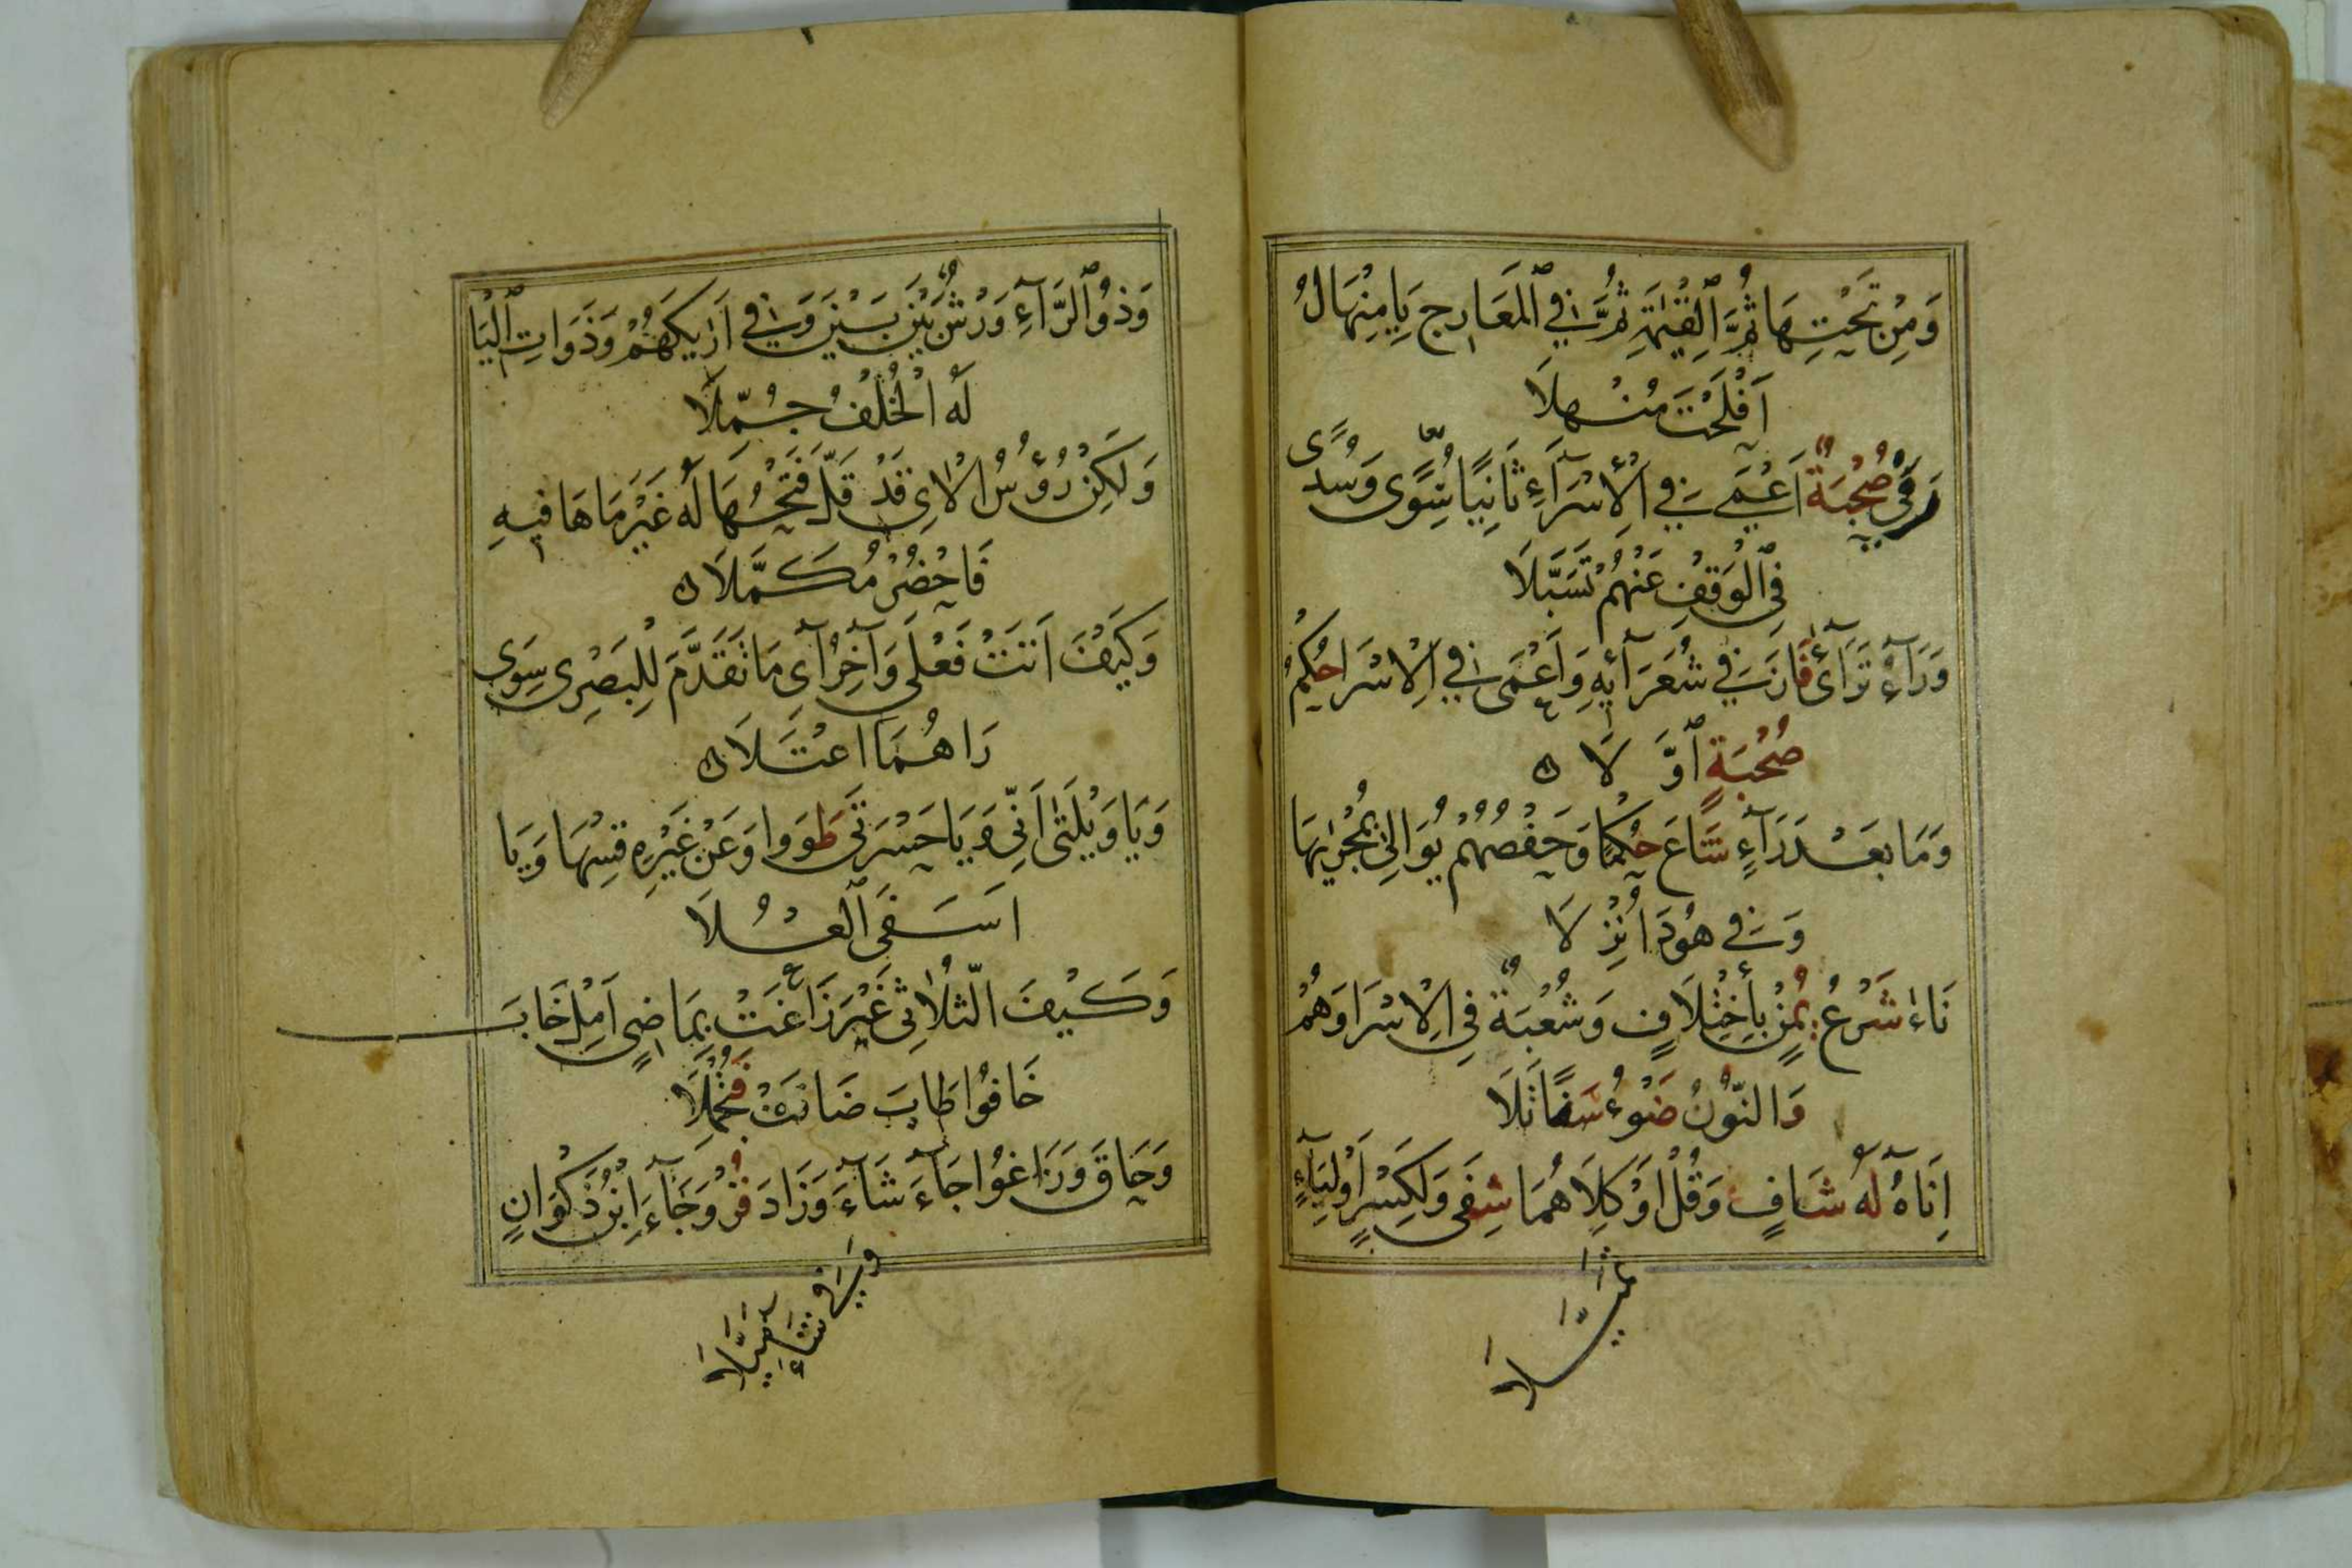 وَمِنْ تَحْتِهَا ثُمَّ ٱلْقِيٰمَةِ ثُمَّ فِي ٱلْمَعَارِجِ يَا مِنْهَالُ
اَفْلَحْتَ مُنْهِلَا
رَمٰى صُحْبَةٌ اَعْمٰى فِي الْاِسْرَآءِ ثَانِيًا سُِوًى وَسُدًى
فِي ٱلْوَقْفِ عَنْهُمْ تَسَبَّلَا
وَرَآءُ تَرَآءٰى فَازَ فِي شُعَرَآئِهِ وَاَعْمٰى فِي الْاِسْرَا حُكْمُ
صُحْبَةٍ ٱوَّلَا ه
وَمَا بَعْدَ رَآءٍ شَاعَ حُكْمًا وَحَفْصُهُمْ يُوَالِي بِمَجْرٰىهَا
وَفِي هُودَ اُنْزِلَا
نَاٰءَ شَرْعُ يُمْنٍ بِاخْتِلَافٍ وَشُعْبَةٌ فِي الْاِسْرَا وَهُمْ
وَالنُّونُ ضَوْءُ سَنًا تَلَا
اِنَاهُ لَهُ شَافٍ وَقُلْ اَوْ كِلَاهُمَا شَفٰى وَلِكَسْرٍ اَوْ لِيَآءٍ
تَمَيَّلَا
وَذُو ٱلرَّآءِ وَرْشٌ بَيْنَ بَيْنَ وَفِي اَرٰىكَهُمْ وَذَوَاتِ ٱلْيَا
لَهُ الْخُلْفُ جُمِّلَا
وَلَكِنْ رُؤُسُ الْاٰيِ قَدْ قَلَّ فَتْحُهَا لَهُ غَيْرَ مَا هَا فِيهِ
فَاحْضُرْ مُكَمَّلَا ه
وَكَيْفَ اَتَتْ فَعْلٰى وَآخِرُ آيِ مَا تَقَدَّمَ لِلْبَصْرِى سِوٰى
رَاهُمَا اعْتَلَا ه
وَيَا وَيْلَتٰى اَنّٰى وَيَا حَسْرَتٰى طَوَوا وَعَنْ غَيْرِهِ قِسْهَا وَيَا
اَسَفَى ٱلْعُلَا
وَكَيْفَ الثُّلَاثِي غَيْرَ زَاغَتْ بِمَاضِي اَمِلْ خَابَ
خَافُوا طَابَ ضَاقَتْ فَتُجْمِلَا
وَحَاقَ وَزَاغُوا جَآءَ شَآءَ وَزَادَ فُزْ وَجَآءَ ابْنُ ذَكْوَانٍ
وَفِي شَآءَ مَيَّلَا